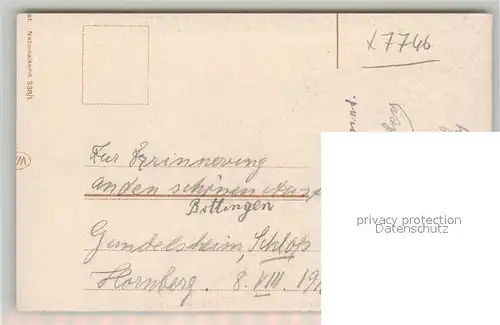 Nationalkarte 338/1.
x7746
Zur Erinnerung
an den schönen
Böttingen
Gundelsheim, Schloß
Hornberg. 8. VIII. 19
privacy protection
Datenschutz